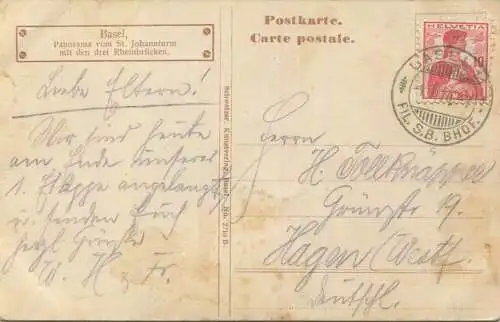 Basel,
Panorama vom St. Johannturm
mit den drei Rheinbrücken.
Postkarte.
Carte postale.
HELVETIA
10
BASEL
FIL. S.B. BHOF.
Liebe Eltern!
Wir sind heute
am Ende unserer
1. Etappe angelangt
u. senden Euch
herzl. Grüße
W. H. & Fr.
Schweizer. Kunstverlag Basel. No. 2710 B
Herrn
H. Tollknäpper
Grünstr 19.
Hagen (Westf.
Deutschl.